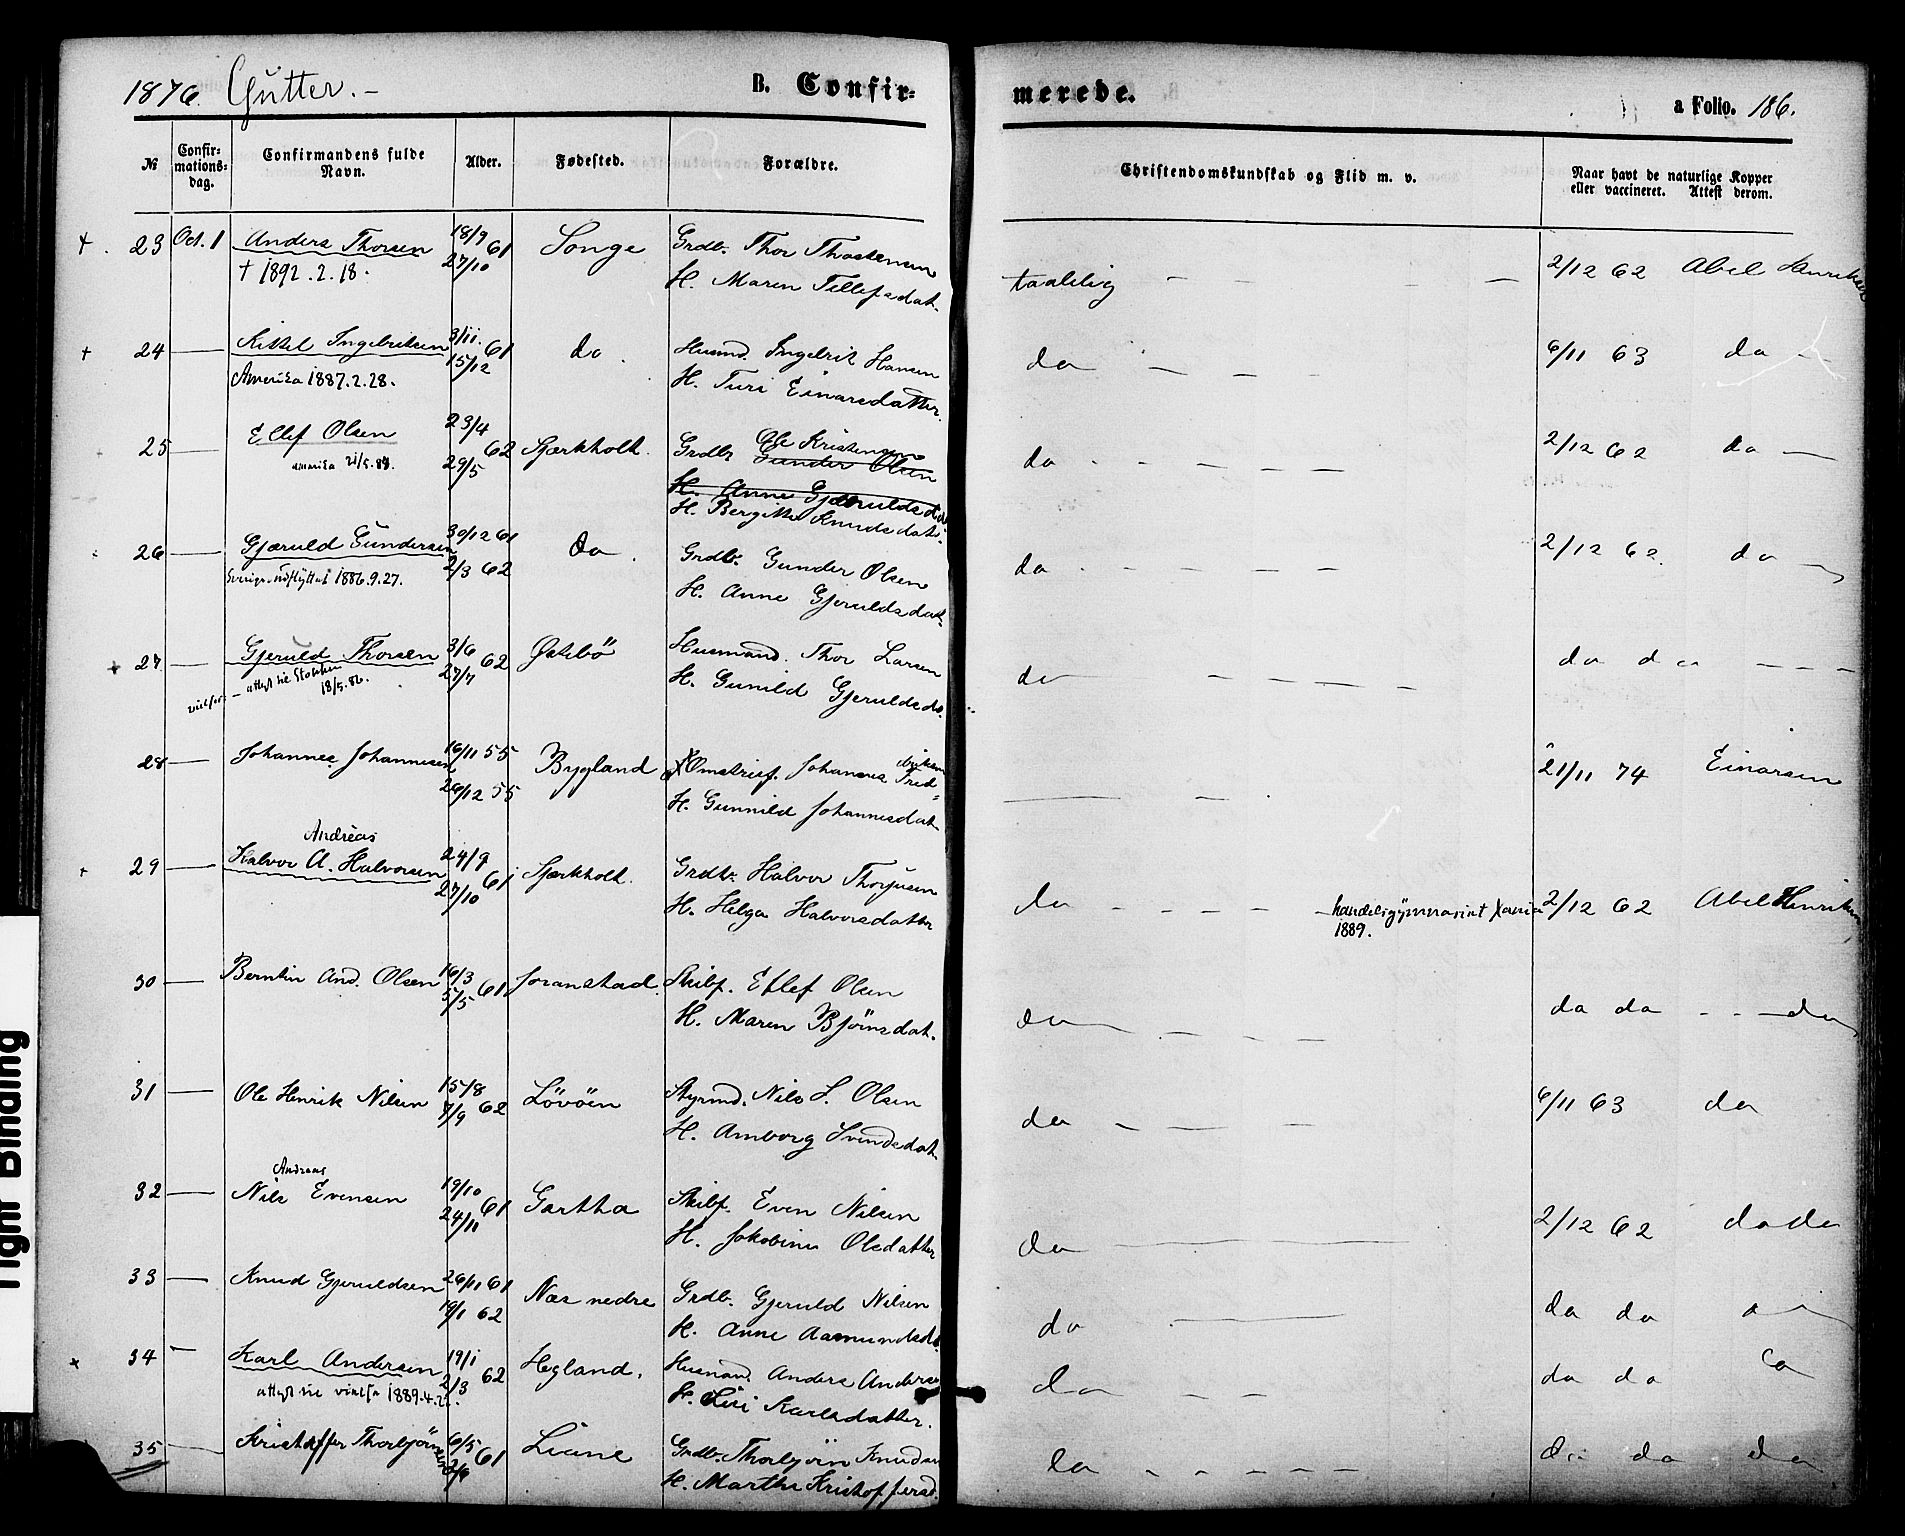 1876. Gutter. -
B. Confir=
merede.
a Folio. 186.
No
Confir=
mations=
dag.
Confirmandens fulde
Navn.
Alder.
Fødested.
Forældre.
Christendomskundskab og Flid m. v.
Naar havt de naturlige Kopper
eller vaccineret. Attest derom.
+ 23 Oct. 1 Anders Thorsen 18/9 61 Songe Grdb. Thor Thorstensen
† 1892.2.18. 27/10 H. Maren Tellefsdat.
taalelig - - - - 2/12 62 Abel Henriksen
+ 24 — Kittel Ingebritsen 3/11. 61 do. Husmd. Ingebrit Hansen
Amerika 1887.2.28. 15/12 H. Turi Einarsdatter.
do - - - - 6/11 63 do -
25 — Ellef Olsen 23/4 62 Sjærkholt. Grdb. Ole Kristensen
Gunder Olsen
amerika 21/5.84. 29/5
H. Anne Gjæruldsdat.
H. Bergitte Knudsdat.
do - - - - 2/12 62 do -
26 — Gjæruld Gundersen 30/12 61 do. Grdb. Gunder Olsen
Sverige udflyttet 1886.9.27. 2/3 62 H. Anne Gjeruldsdat.
do - - - - - 2/12 62. do -
+ 27 — Gjeruld Thorsen 3/6 62 Østebö Husmand. Thor Larsen
18/5.86. 27/7 H. Gunild Gjeruldsd.
do - - - - do do - - -
28 — Johannes Johannesen 16/11 55 Bygland Omstreif. Johannes Fred=
riksen
26/12 55 H. Gunnild Johannesdat.
— - 21/11 74 Einarsen
Andreas
+ 29 — Halvor A. Halvorsen 24/9 61 Sjærkholt. Grdb. Halvor Thorjusen
27/10 H. Helga Halvorsdatter
do - - - - - handelsgymnasiet Xania 2/12 62 Abel Henriksen
1889.
30 — Berntin And. Olsen 16/3 61 Joranstad. Skibf. Ellef Olsen
5/5 H. Maren Bjönsdat.
do - - - - do do - - do
31 — Ole Henrik Nilsen 15/8 62 Lövöen Styrmd. Nils S. Olsen
7/9 H. Amborg Svendsdat.
do - - - 6/11 63 do
Andreas
32 — Nils Evensen 19/10 61 Gartha Skibf. Even Nilsen
24/11 H. Jokobine Olsdatter
do — 2/12 62 do do
33 — Knud Gjeruldsen 26/11 61 Næs nedre Grdb. Gjeruld Nilsen
19/1 62 H. Anne Aamundsd.
do — do do
+ 34 - Karl Andersen 19/1 62 Hegland. Husmand. Anders Andersen
1889.4.2 2/3 H. Siri Karlsdatter.
do - - do do
35 — Kristoffer Thorbjörnsen 6/5 61 Liane Grdb. Thorbjörn Knudsen
H. Marthe Kristoffersd.
do - - - - - do do do
Tight Binding